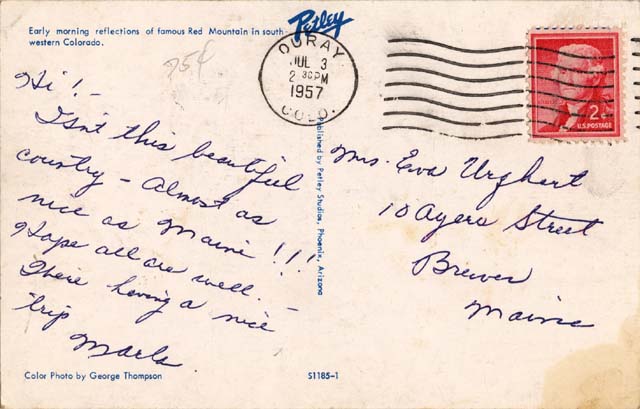 Early morning reflections of famous Red Mountain in south-
western Colorado.
Petley
25¢
OURAY
JUL 3
2 30PM
1957
COLO.
2¢
U.S. POSTAGE
Hi! –
Isn't this beautiful
country – Almost as
nice as Maine!!!
Hope all are well. –
There having a nice
trip
Marla
Published by Petley Studios, Phoenix, Arizona
Mrs. Eva Urghart
10 Ayers Street
Brewer
Maine
Color Photo by George Thompson
S1185-1